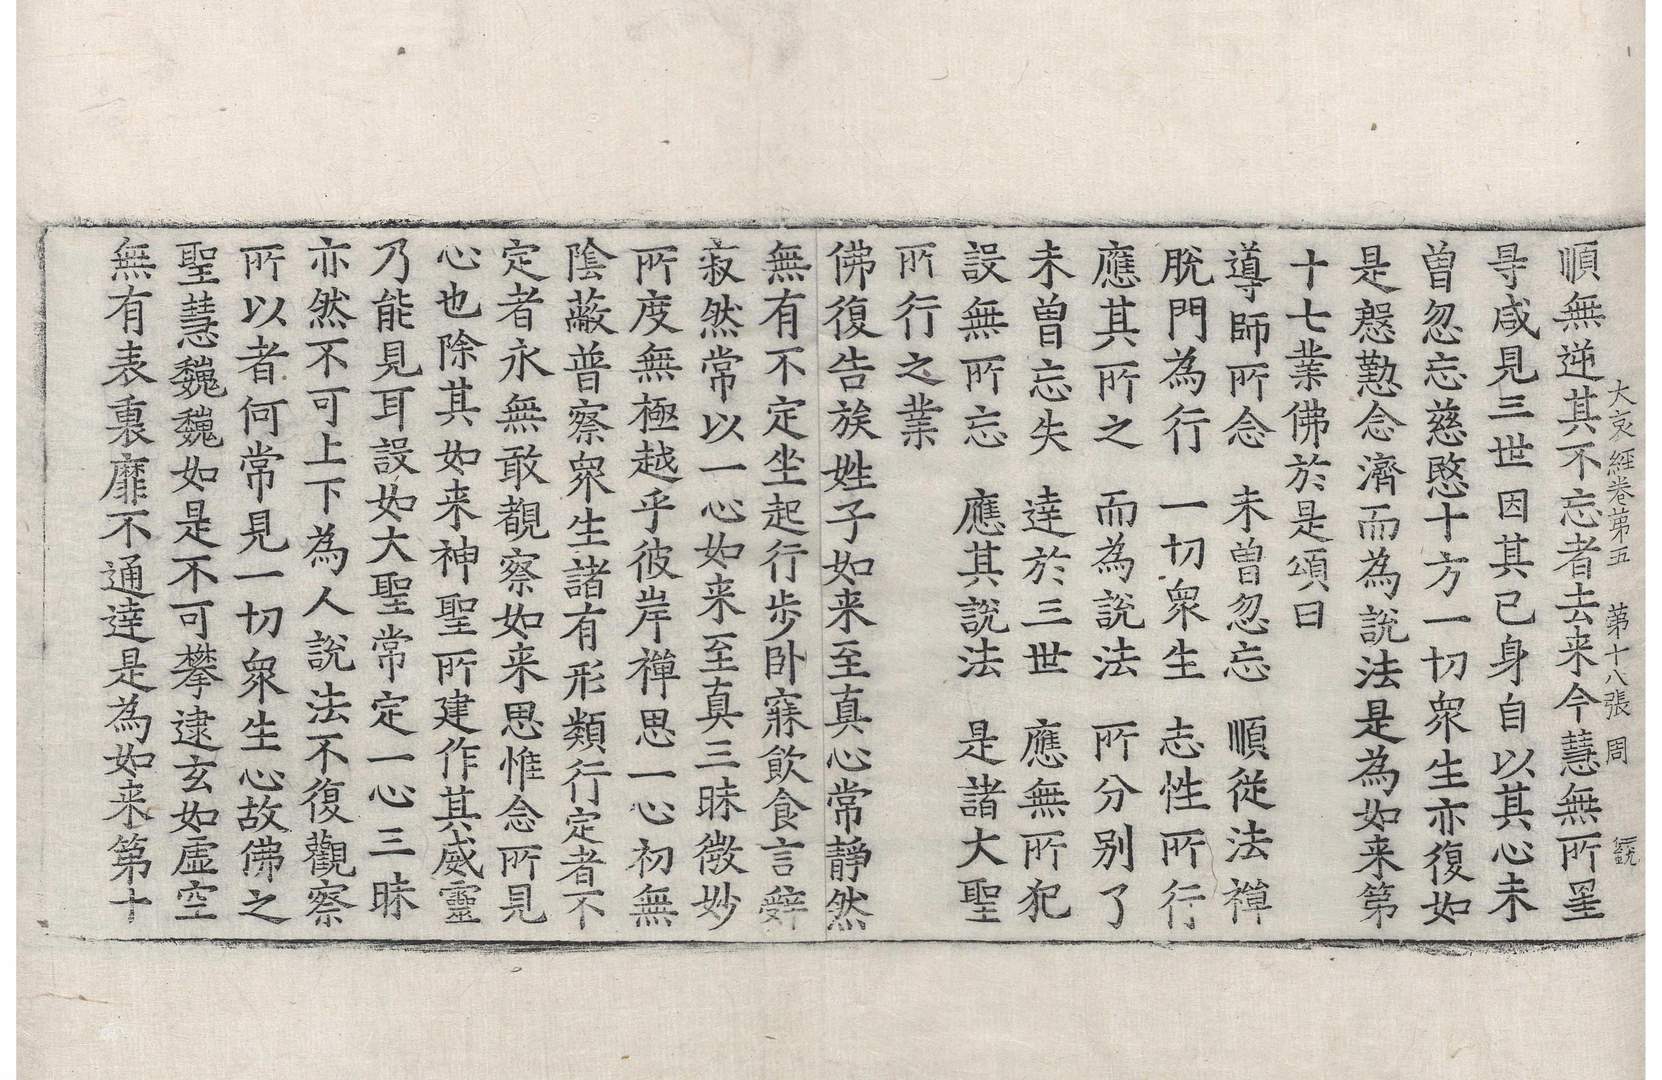 大哀經卷第五　第十八張　周
順無逆其不忘者去来今慧無所罣
㝵咸見三世因其己身自以其心未
曽忽忘慈愍十方一切衆生亦復如
是慇懃念濟而為說法是為如来第
十七業佛於是頌曰
導師所念　未曽忽忘　順從法禅
脫門為行　一切衆生　志性所行
應其所之　而為說法　所分別了
未曽忘失　達於三世　應無所犯
設無所忘　應其說法　是諸大聖
所行之業
佛復告族姓子如来至真心常靜然
無有不定坐起行步卧寐飲食言辭
寂然常以一心如来至真三昧微妙
所度無極越乎彼岸禪思一心初無
陰蔽普察衆生諸有形類行定者不
定者永無敢覩察如来思惟念所見
心也除其如来神聖所建作其威靈
乃能見耳設如大聖常定一心三昧
亦然不可上下為人說法不復觀察
所以者何常見一切衆生心故佛之
聖慧巍巍如是不可攀逮玄如虛空
無有表裏靡不通達是為如来第十